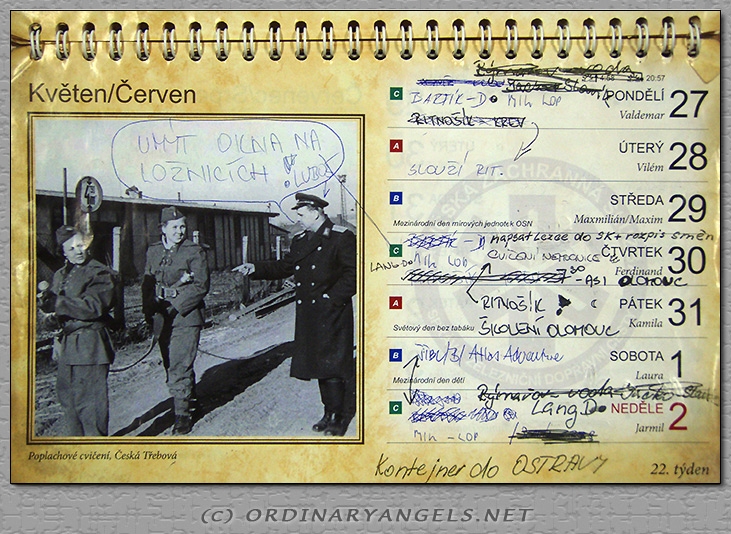 Květen/Červen
UMÝT OKNA NA
LOŽNICÍCH
Poplachové cvičení, Česká Třebová
20:57
C
BARTÍK-D MIK LOP
PONDĚLÍ 27
Valdemar
RITNOŠÍK - KREV
A
ÚTERÝ 28
SLOUŽÍ RIT.
Vilém
B
STŘEDA 29
Maxmilián/Maxim
Mezinárodní den mírových jednotek OSN
-D napsat do SK + rozpis směn
C
LANG D
MIK LOP CVIČENÍ NEMOCNICE
ČTVRTEK 30
Ferdinand
- ASI OLOMOUC
A
RITNOŠÍK
PÁTEK 31
Kamila
Světový den bez tabáku
ŠKOLENÍ OLOMOUC
B
Atlas Adventure
SOBOTA 1
Laura
Mezinárodní den dětí
Rýmařov - voda
C
Lang D
NEDĚLE 2
Jarmil
MIK - LOP
Kontejner do OSTRAVY
22. týden
(C) ORDINARYANGELS.NET